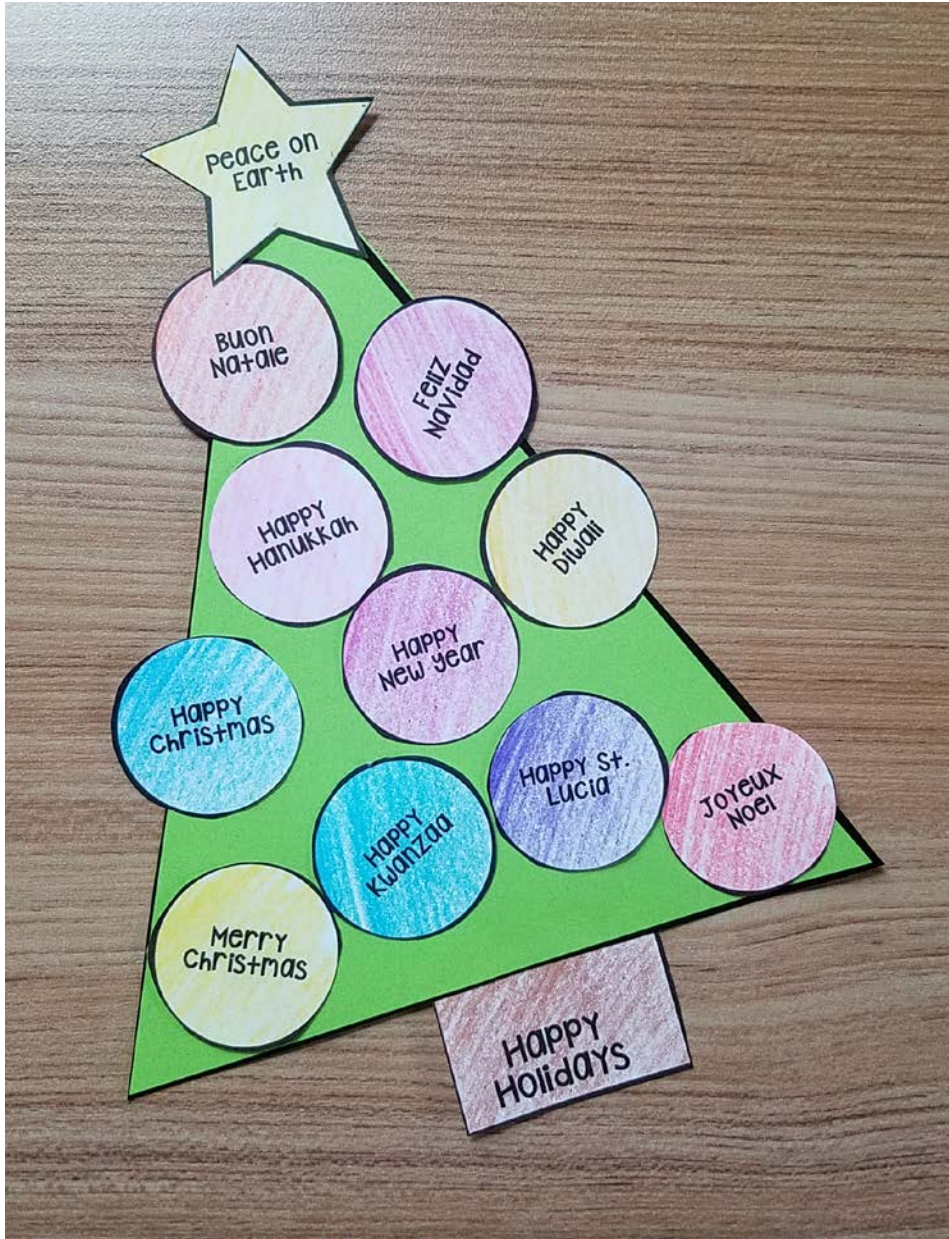 Peace on
Earth
Buon
Natale
Feliz
Navidad
Happy
Hanukkah
Happy
Diwali
Happy
New year
Happy
Christmas
Happy St.
Lucia
Joyeux
Noel
Happy
Kwanzaa
Merry
Christmas
Happy
Holidays